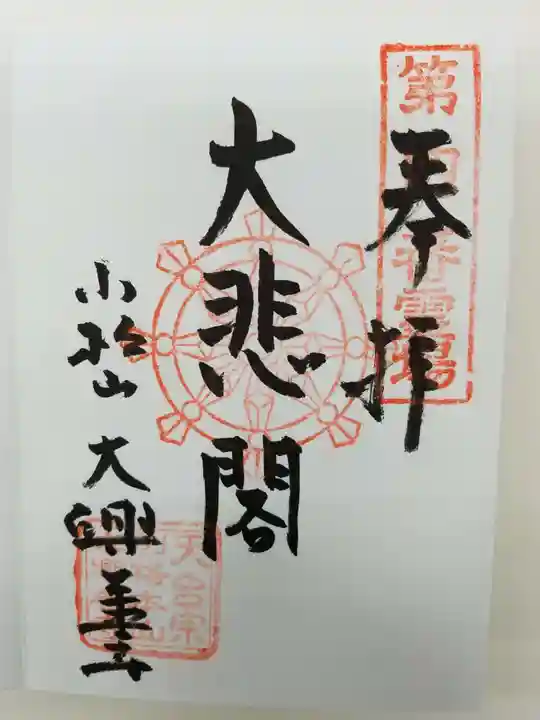 奉拝
第四番霊場
大悲閣
小松山 大興善寺
天台宗